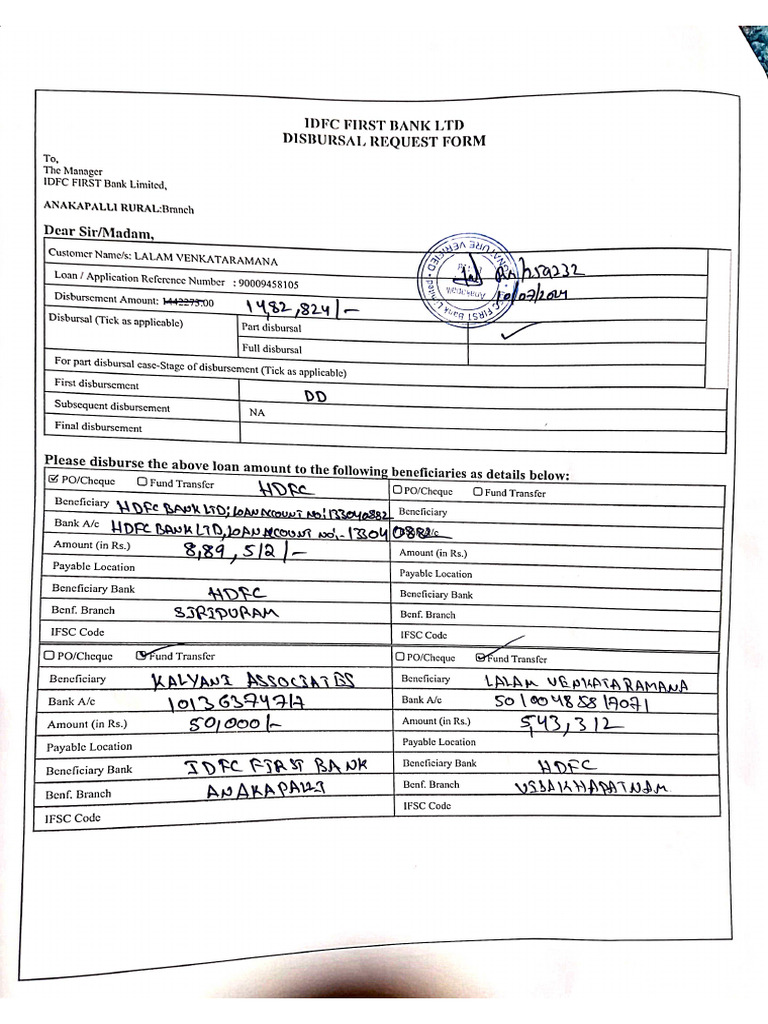 IDFC FIRST BANK LTD
DISBURSAL REQUEST FORM
To,
The Manager
IDFC FIRST Bank Limited,
ANAKAPALLI RURAL:Branch
Dear Sir/Madam,
Customer Name/s: LALAM VENKATARAMANA
Loan / Application Reference Number : 90009458105
Disbursement Amount: 1442273.00 1482,824/-
SIGNATURE VERIFIED
Anakapalli
IDFC FIRST Bank Limited
10/07/2024
Disbursal (Tick as applicable) Part disbursal
Full disbursal
For part disbursal case-Stage of disbursement (Tick as applicable)
First disbursement DD
Subsequent disbursement NA
Final disbursement
Please disburse the above loan amount to the following beneficiaries as details below:
PO/Cheque Fund Transfer HDFC
Beneficiary HDFC BANK LTD; LOAN ACCOUNT NO:133040882
Bank A/c HDFC BANK LTD, LOAN ACCOUNT NO:-133040882
Amount (in Rs.) 8,89,512/-
Payable Location
Beneficiary Bank HDFC
Benf. Branch SIRIPURAM
IFSC Code
PO/Cheque Fund Transfer
Beneficiary
Amount (in Rs.)
Payable Location
Beneficiary Bank
Benf. Branch
IFSC Code
PO/Cheque Fund Transfer
Beneficiary KALYANI ASSOCIATES
Bank A/c 10136374717
Amount (in Rs.) 50,000/-
Payable Location
Beneficiary Bank IDFC FIRST BANK
Benf. Branch ANAKAPALLI
IFSC Code
PO/Cheque Fund Transfer
Beneficiary LALAM VENKATARAMANA
Bank A/c 50100485817071
Amount (in Rs.) 5,43,312
Payable Location
Beneficiary Bank HDFC
Benf. Branch VISAKHAPATNAM
IFSC Code